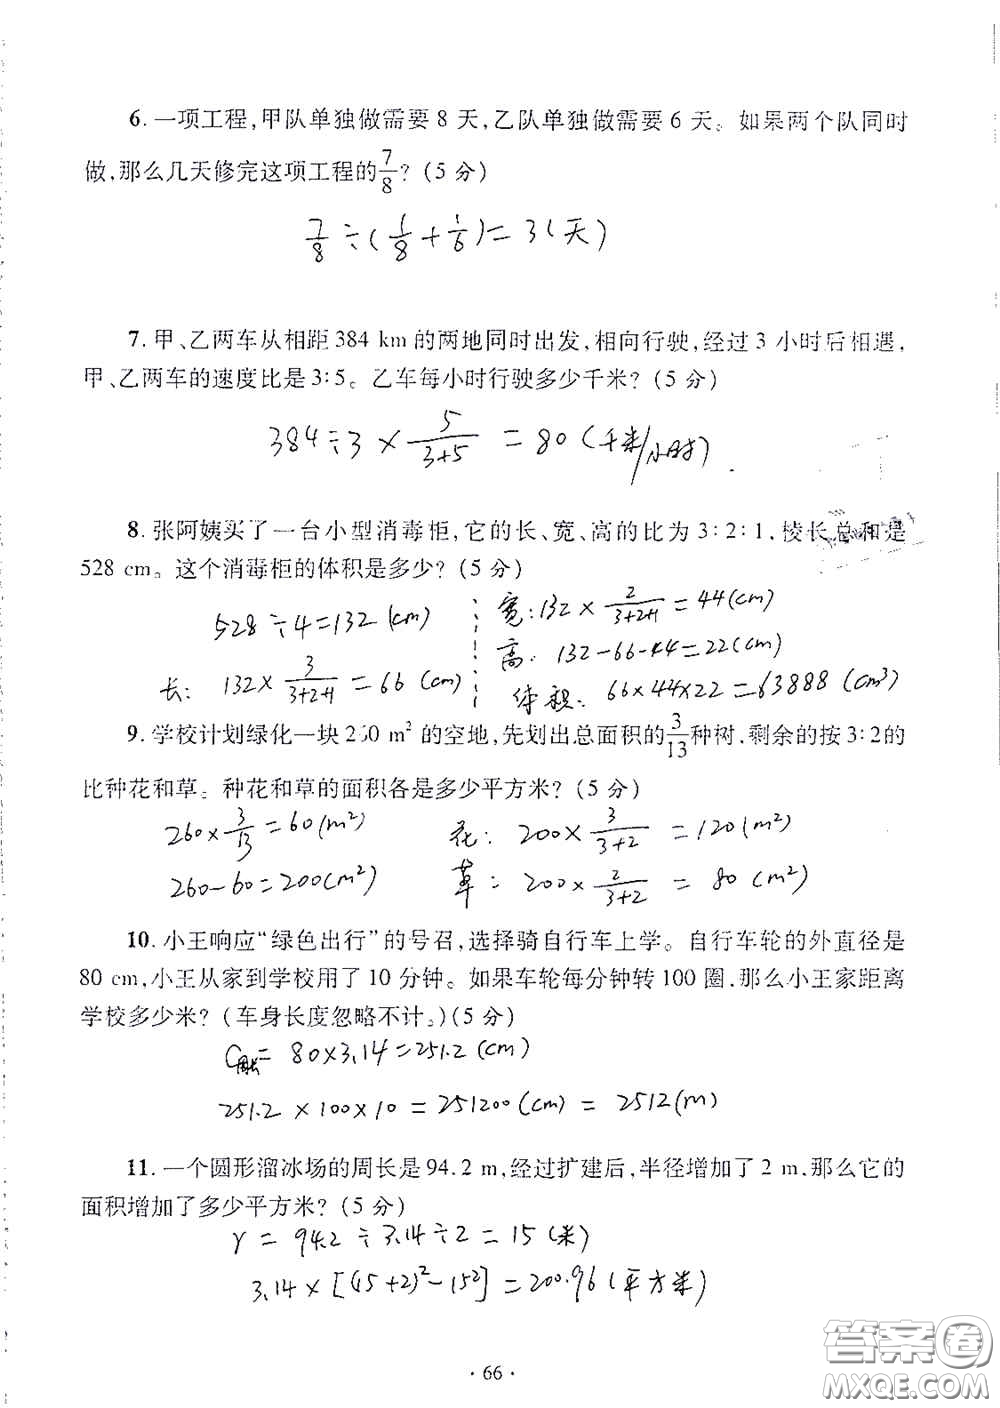 6. 一项工程,甲队单独做需要 8 天,乙队单独做需要 6 天。如果两个队同时
做,那么几天修完这项工程的7/8?(5 分)
7/8÷(1/8+1/6)=3(天)
7. 甲、乙两车从相距 384 km 的两地同时出发,相向行驶,经过 3 小时后相遇,
甲、乙两车的速度比是 3:5。乙车每小时行驶多少千米?(5 分)
384÷3×5/(3+5)=80(千米/小时)
8. 张阿姨买了一台小型消毒柜,它的长、宽、高的比为 3:2:1,棱长总和是
528 cm。这个消毒柜的体积是多少?(5 分)
528÷4=132(cm)
长:132×3/(3+2+1)=66(cm)
宽:132×2/(3+2+1)=44(cm)
高:132-66-44=22(cm)
体积:66×44×22=63888(cm³)
9. 学校计划绿化一块 260 m² 的空地,先划出总面积的3/13种树,剩余的按 3:2的
比种花和草。种花和草的面积各是多少平方米?(5 分)
260×3/13=60(m²)
260-60=200(m²)
花:200×3/(3+2)=120(m²)
草:200×2/(3+2)=80(m²)
10. 小王响应“绿色出行”的号召,选择骑自行车上学。自行车轮的外直径是
80 cm,小王从家到学校用了 10 分钟。如果车轮每分钟转 100 圈,那么小王家距离
学校多少米?(车身长度忽略不计。)(5 分)
C周长=80×3.14=251.2(cm)
251.2×100×10=251200(cm)=2512(m)
11. 一个圆形溜冰场的周长是 94.2 m,经过扩建后,半径增加了 2 m,那么它的
面积增加了多少平方米?(5 分)
r=94.2÷3.14÷2=15(米)
3.14×[(15+2)²-15²]=200.96(平方米)
· 66 ·
答案圈
MXQE.COM